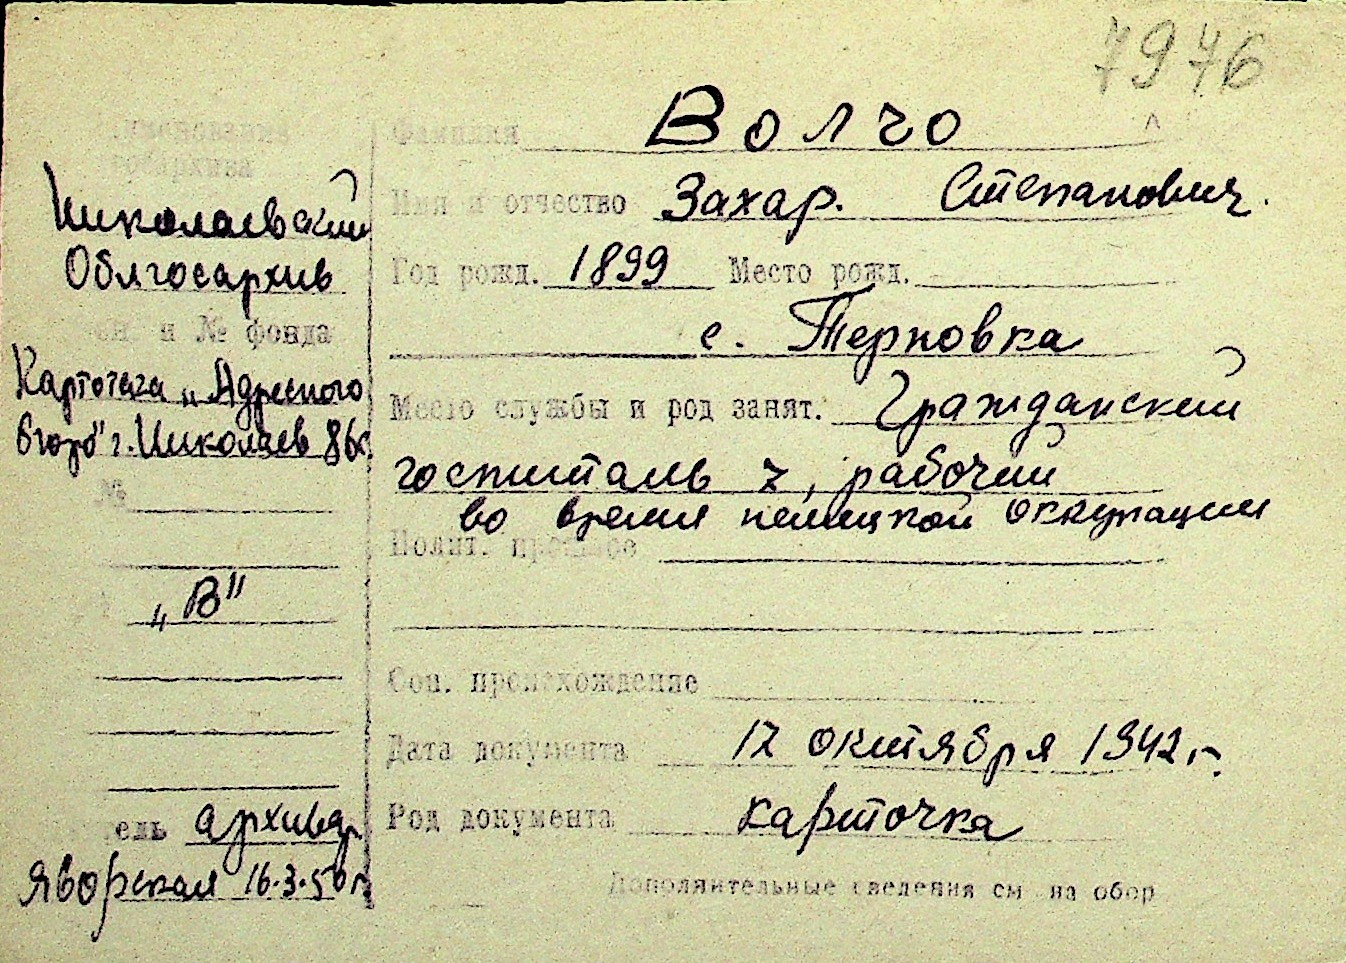 7976
Волчо
Фамилия
именование
госархива
Николаевский
Облгосархив
и № фонда
Картотека „Адресного
бюро" г. Николаев
№
„В"
архивар.
Яворская 16.3.50 г.
Имя и отчество Захар. Степанович.
Год рожд. 1899 Место рожд.
с. Терновка
Место службы и род занят. Гражданский
госпиталь 7, рабочий
во время немецкой оккупации
Полит. прошлое
Соц. происхождение
Дата документа 17 октября 1942 г.
Род документа карточка
Дополнительные сведения см на обор